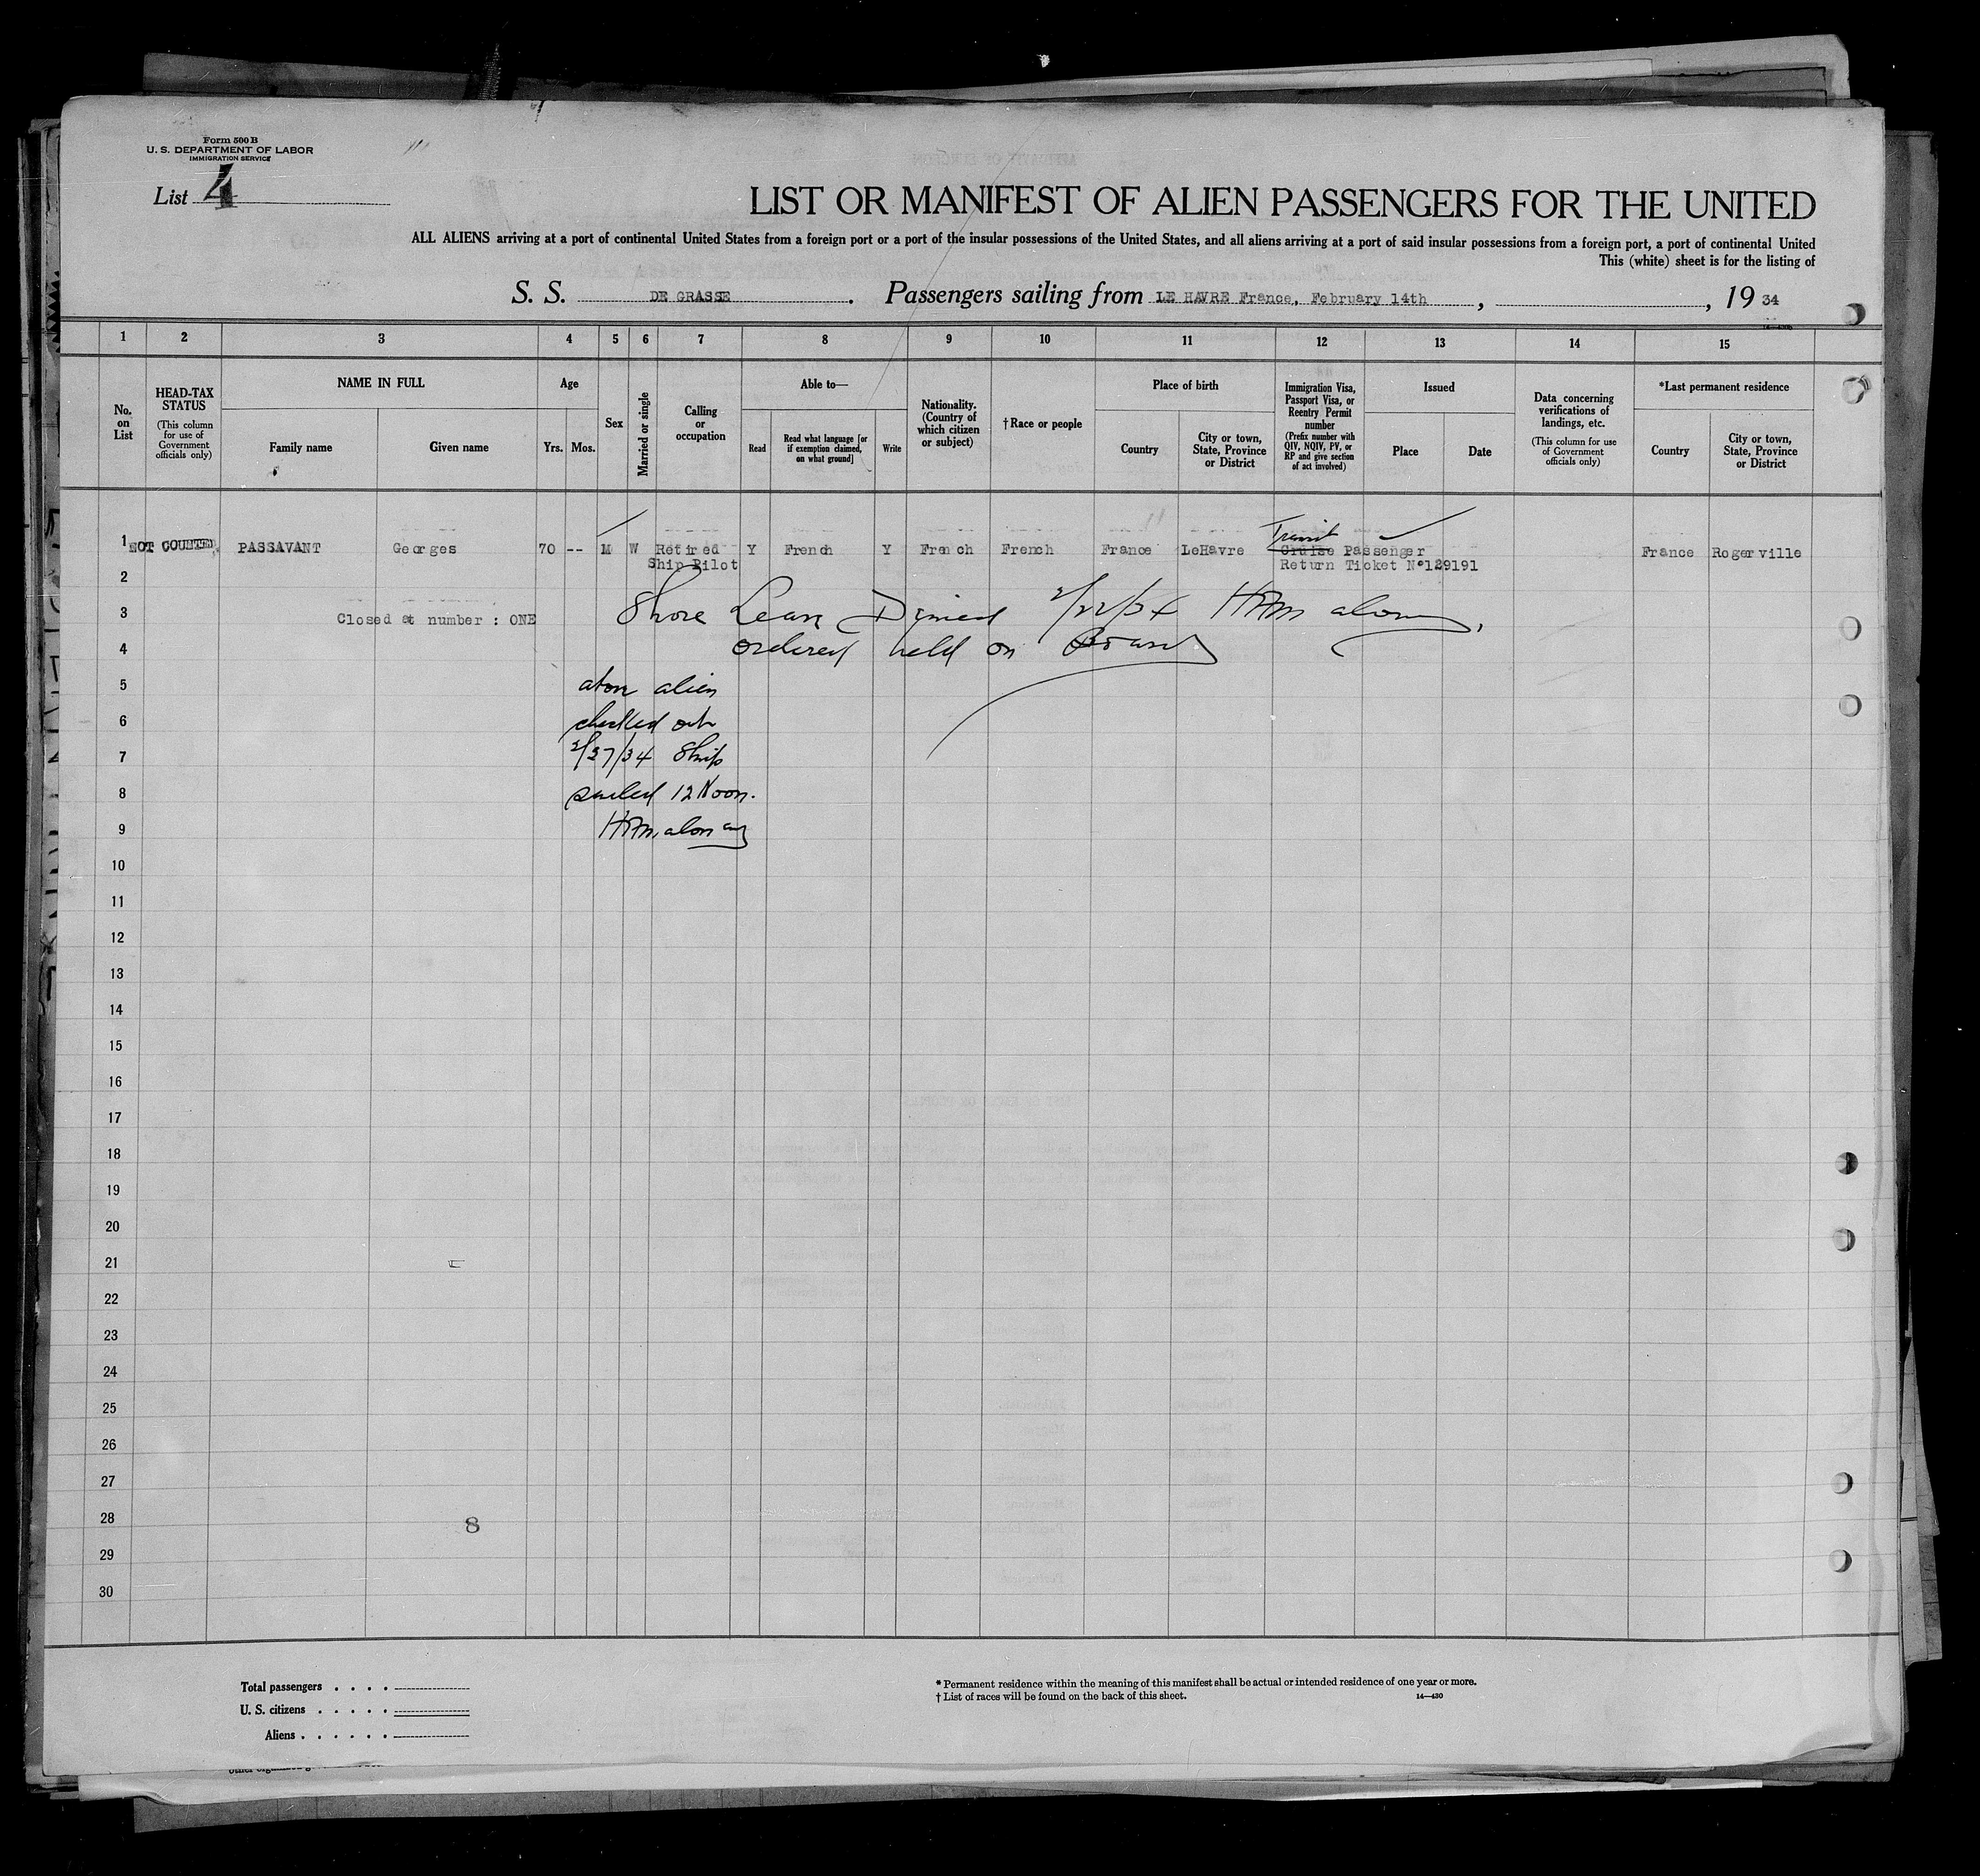 Form 500 B
U. S. DEPARTMENT OF LABOR
IMMIGRATION SERVICE
List 4
LIST OR MANIFEST OF ALIEN PASSENGERS FOR THE UNITED
ALL ALIENS arriving at a port of continental United States from a foreign port or a port of the insular possessions of the United States, and all aliens arriving at a port of said insular possessions from a foreign port, a port of continental United
This (white) sheet is for the listing of
S. S. DE GRASSE. Passengers sailing from LE HAVRE France, February 14th, , 19 34
1 2 3 4 5 6 7 8 9 10 11 12 13 14 15
No. on List
HEAD-TAX STATUS
(This column for use of Government officials only)
NAME IN FULL
Family name
Given name
Age
Yrs. Mos.
Sex
Married or single
Calling or occupation
Able to—
Read
Read what language [or if exemption claimed, on what ground]
Write
Nationality. (Country of which citizen or subject)
†Race or people
Place of birth
Country
City or town, State, Province or District
Immigration Visa, Passport Visa, or Reentry Permit number
(Prefix number with QIV, NQIV, PV, or RP and give section of act involved)
Issued
Place
Date
Data concerning verifications of landings, etc.
(This column for use of Government officials only)
*Last permanent residence
Country
City or town, State, Province or District
Transit
1 NOT COUNTED PASSAVANT Georges 70 -- M W Retired Y French Y French French France LeHavre Cruise Passenger France Rogerville
Ship Pilot Return Ticket N°129191
2
3 Closed at number : ONE Shore Leave Denied 2/22/34
4 ordered held on Board
5 alien
6 checked out
7 2/27/34 Ship
8 sailed 12 Noon.
9
10
11
12
13
14
15
16
17
18
19
20
21
22
23
24
25
26
27
28 8
29
30
Total passengers . . . .
U. S. citizens . . . . .
Aliens . . . . . .
* Permanent residence within the meaning of this manifest shall be actual or intended residence of one year or more.
† List of races will be found on the back of this sheet. 14—430